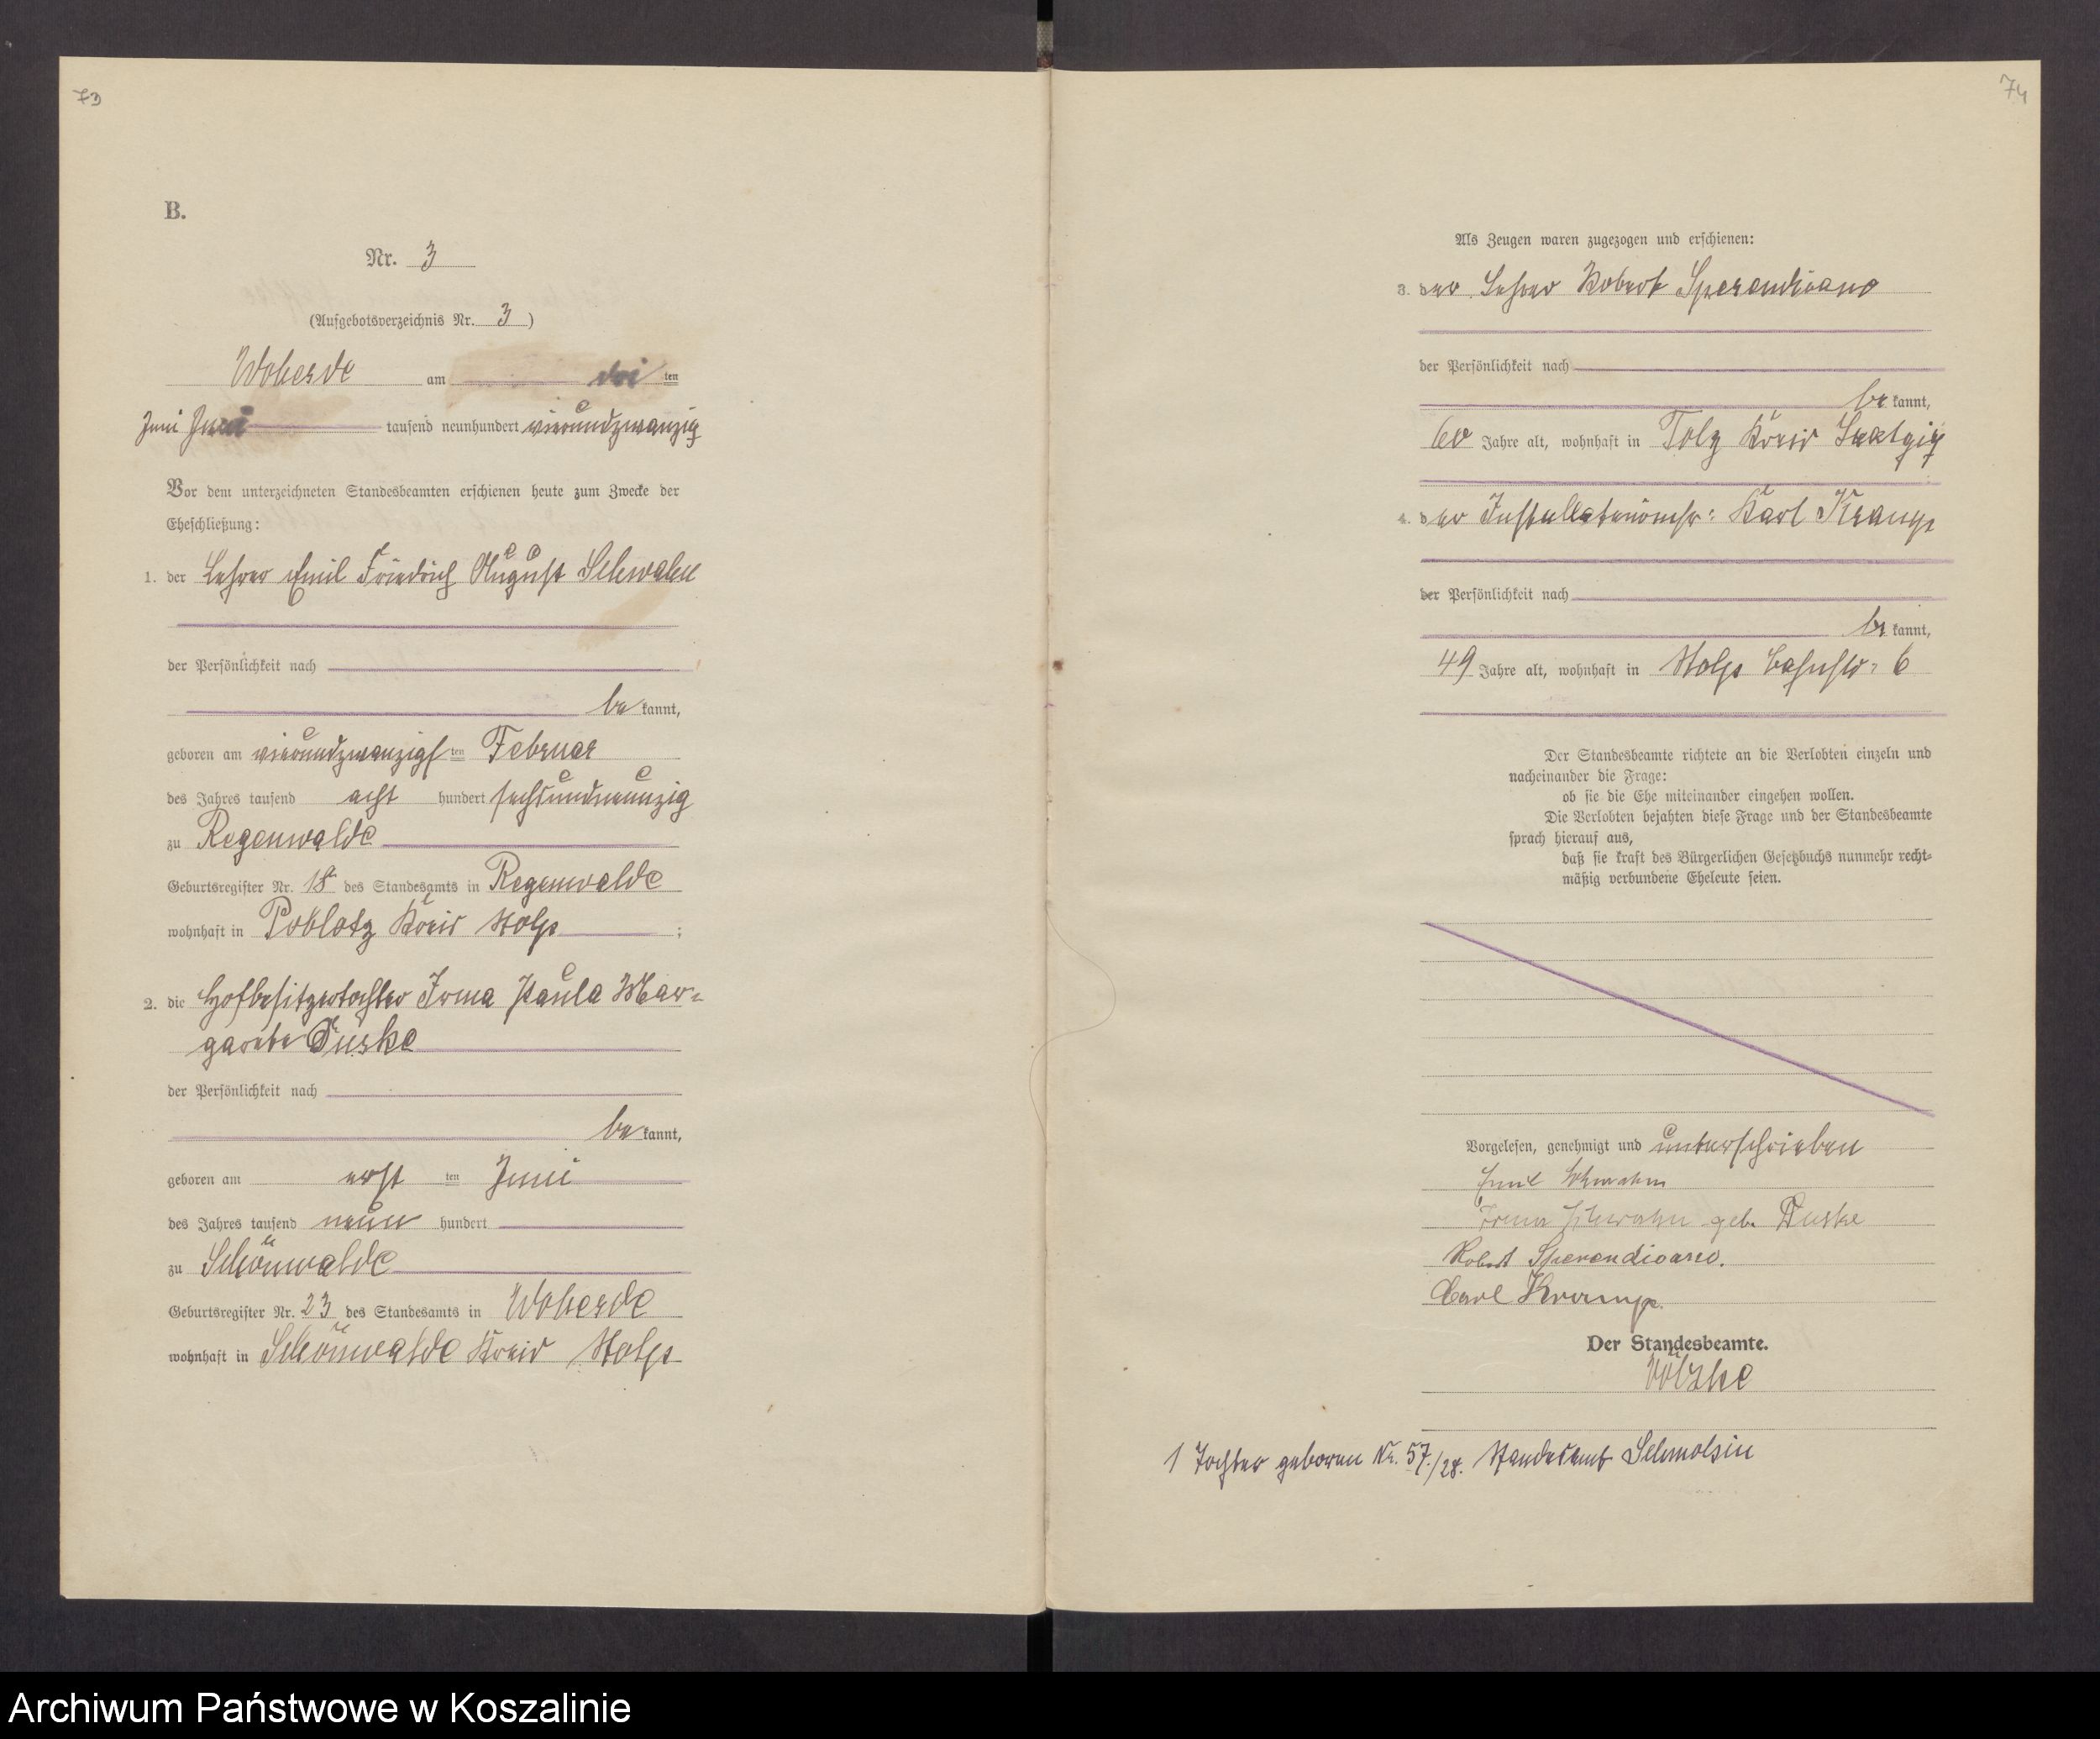 73
B.
Nr. 3
(Aufgebotsverzeichnis Nr. 3)
Woberde am drei ten
Juni Juni tausend neunhundert vierundzwanzig
Vor dem unterzeichneten Standesbeamten erschienen heute zum Zwecke der
Eheschließung:
1. der Lehrer Emil Friedrich August Schwahn
der Persönlichkeit nach
be kannt,
geboren am vierundzwanzigs ten Februar
des Jahres tausend acht hundert sechsundneunzig
zu Regenwalde
Geburtsregister Nr. 18 des Standesamts in Regenwalde
wohnhaft in Poblotz Kreis Stolp ;
2. die Hofbesitzertochter Irma Paula Mar-
garete Duske
der Persönlichkeit nach
be kannt,
geboren am erst ten Juni
des Jahres tausend neun hundert
zu Schönwalde
Geburtsregister Nr. 23 des Standesamts in Woberde
wohnhaft in Schönwalde Kreis Stolp
74
Als Zeugen waren zugezogen und erschienen:
3. der Lehrer Robert Sperandioano
der Persönlichkeit nach
be kannt,
60 Jahre alt, wohnhaft in Tolz Kreis
4. der Karl Kramp
der Persönlichkeit nach
be kannt,
49 Jahre alt, wohnhaft in Stolp Bahnstr. 6
Der Standesbeamte richtete an die Verlobten einzeln und
nacheinander die Frage:
ob sie die Ehe miteinander eingehen wollen.
Die Verlobten bejahten diese Frage und der Standesbeamte
sprach hierauf aus,
daß sie kraft des Bürgerlichen Gesetzbuchs nunmehr recht-
mäßig verbundene Eheleute seien.
Vorgelesen, genehmigt und unterschrieben
Emil Schwahn
Irma Schwahn geb. Duske
Robert Sperandioano.
Carl Kramp.
Der Standesbeamte.
Völzke
1 Tochter geboren Nr. 57./28. Standesamt Schmolsin
Archiwum Państwowe w Koszalinie